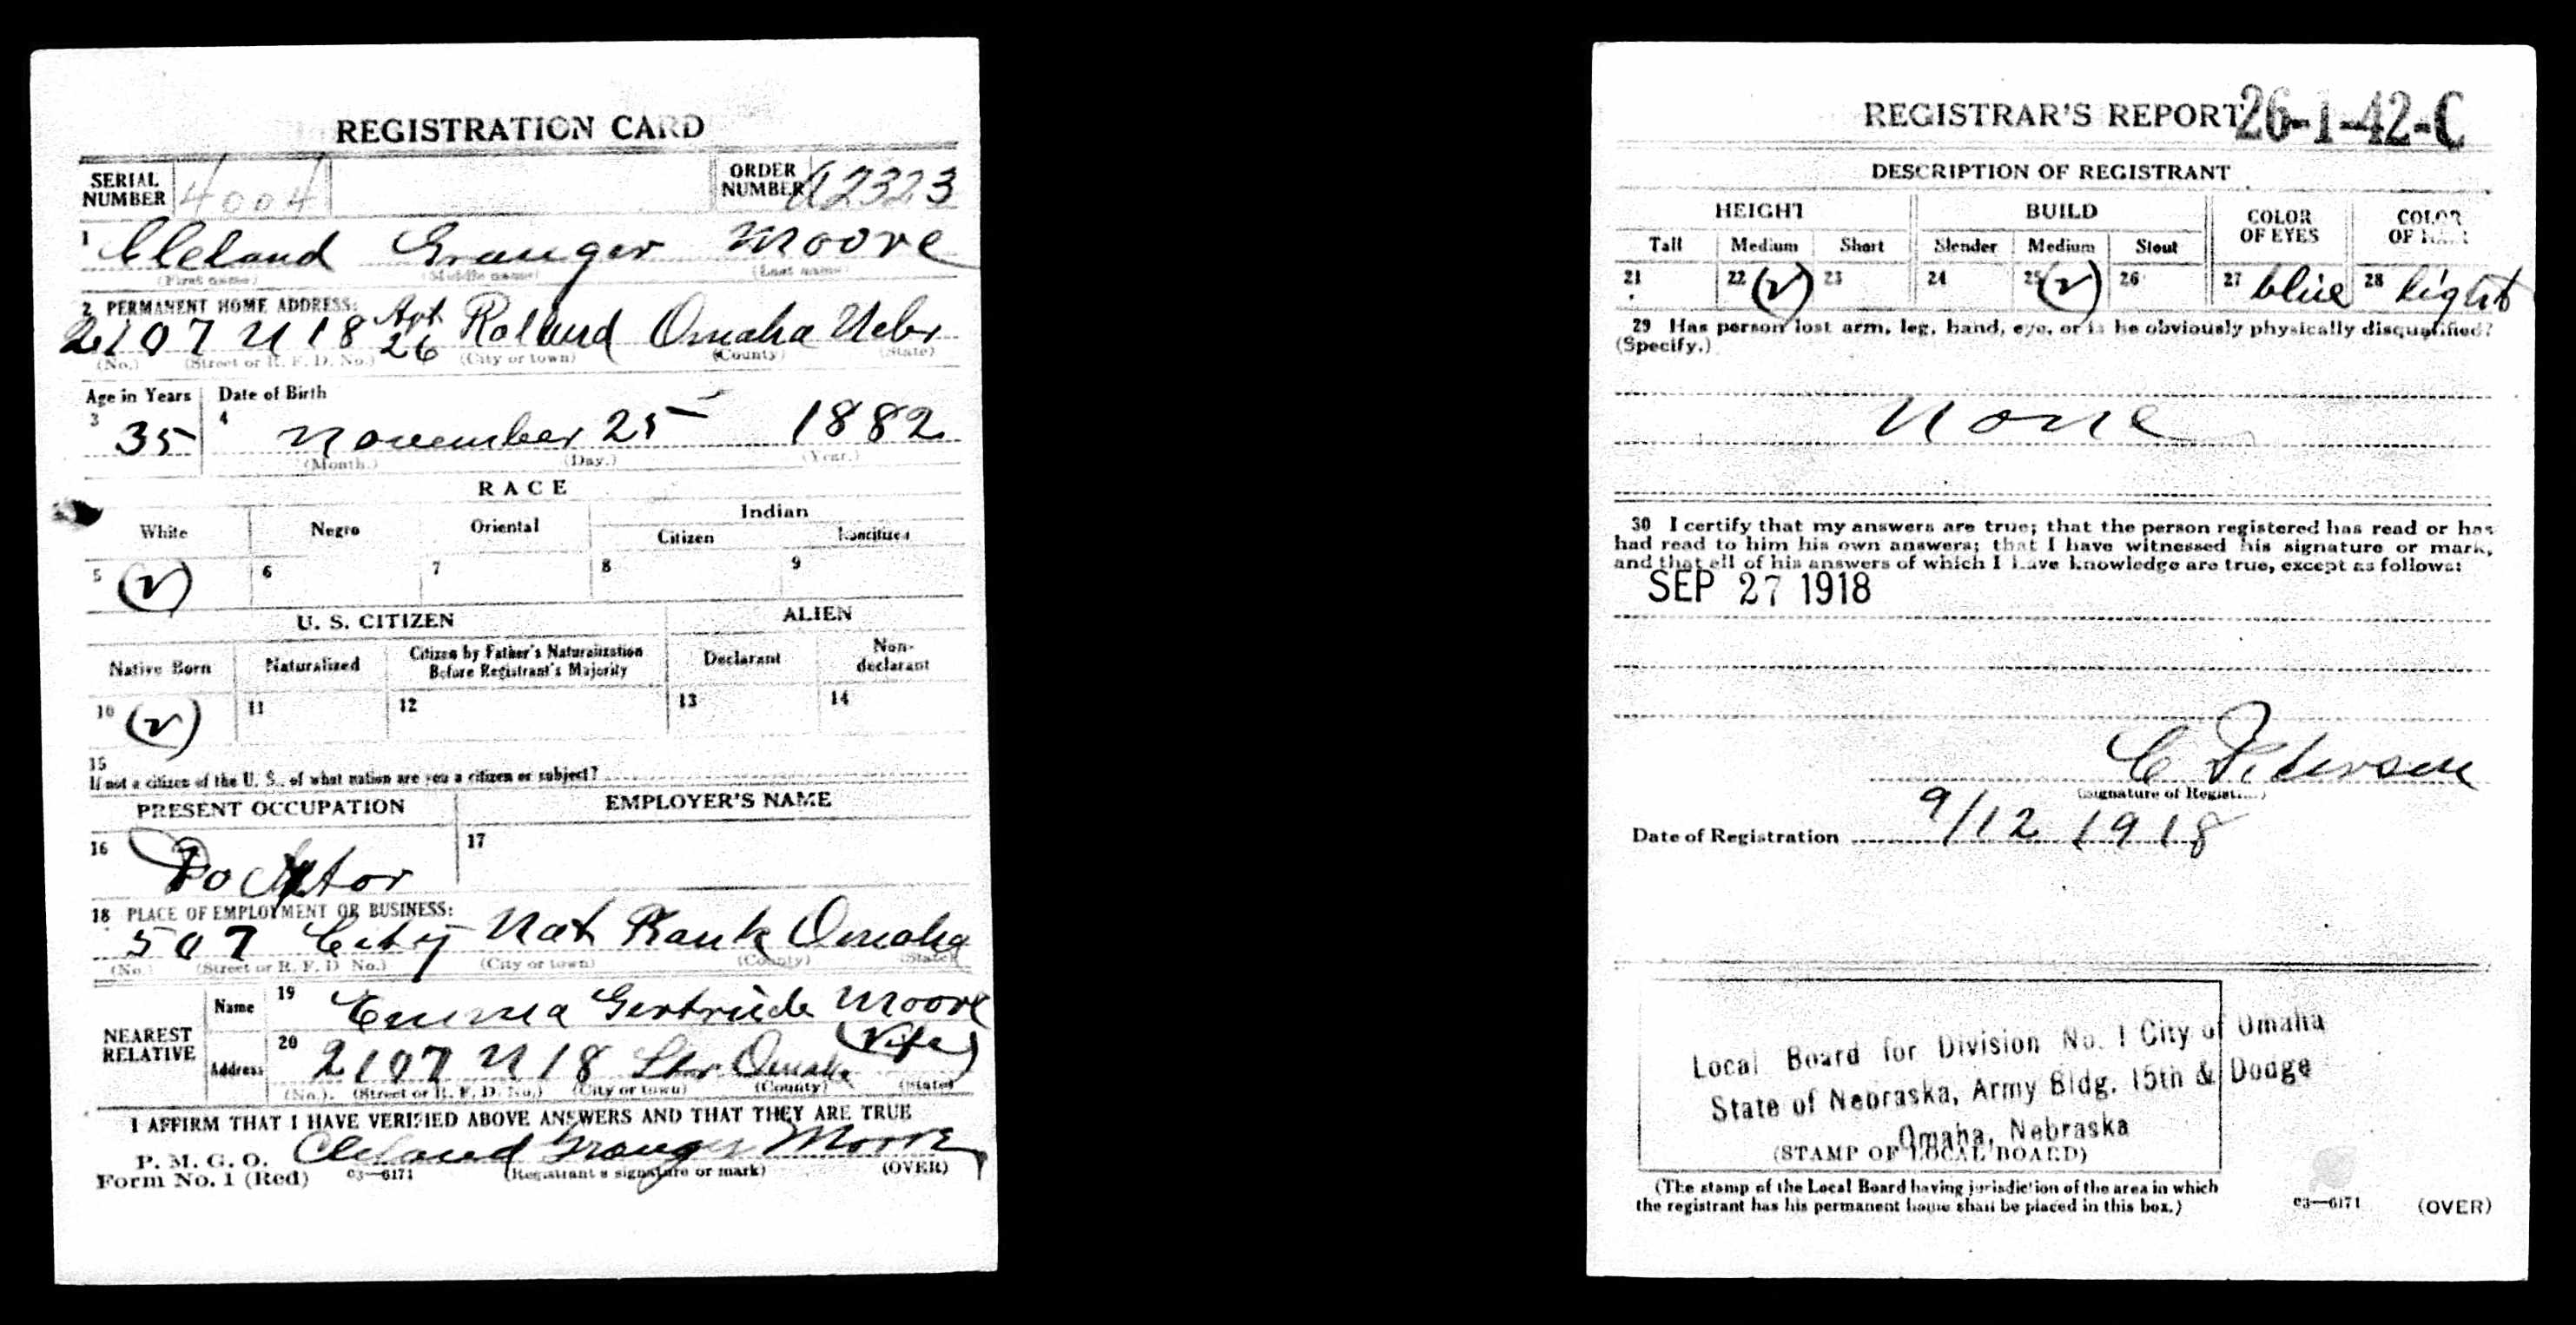 REGISTRATION CARD
SERIAL NUMBER 4004
ORDER NUMBER A2323
1 Cleland Granger Moore
(First name) (Middle name) (Last name)
2 PERMANENT HOME ADDRESS:
2107 N 18 Apt 26 Omaha Nebr
(No.) (Street or R. F. D. No.) (City or town) (County) (State)
Age in Years Date of Birth
3 35 4 November 25 1882
(Month.) (Day.) (Year.)
RACE
White Negro Oriental Indian
Citizen Noncitizen
5 (v) 6 7 8 9
U. S. CITIZEN ALIEN
Native Born Naturalized Citizen by Father's Naturalization Before Registrant's Majority Declarant Non-declarant
10 (v) 11 12 13 14
15
If not a citizen of the U. S., of what nation are you a citizen or subject?
PRESENT OCCUPATION EMPLOYER'S NAME
16 Doctor 17
18 PLACE OF EMPLOYMENT OR BUSINESS:
507 City Nat Bank Omaha
(No.) (Street or R. F. D. No.) (City or town) (County) (State)
NEAREST RELATIVE
Name 19 Emma Gertrude Moore
(Wife)
Address 20 2107 N 18 Str Omaha
(No.) (Street or R. F. D. No.) (City or town) (County) (State)
I AFFIRM THAT I HAVE VERIFIED ABOVE ANSWERS AND THAT THEY ARE TRUE
Cleland Granger Moore
P. M. G. O.
Form No. 1 (Red) 03—6171 (Registrant's signature or mark) (OVER)
REGISTRAR'S REPORT 26-1-42-C
DESCRIPTION OF REGISTRANT
HEIGHT BUILD COLOR OF EYES COLOR OF HAIR
Tall Medium Short Slender Medium Stout
21 22 (v) 23 24 25 (v) 26 27 blue 28 light
29 Has person lost arm, leg, hand, eye, or is he obviously physically disqualified?
(Specify.)
None
30 I certify that my answers are true; that the person registered has read or has
had read to him his own answers; that I have witnessed his signature or mark,
and that all of his answers of which I have knowledge are true, except as follows:
SEP 27 1918
C Peterson
(Signature of Registrar)
Date of Registration 9/12 1918
Local Board for Division No. 1 City of Omaha
State of Nebraska, Army Bldg. 15th & Dodge
Omaha, Nebraska
(STAMP OF LOCAL BOARD)
(The stamp of the Local Board having jurisdiction of the area in which
the registrant has his permanent home shall be placed in this box.)
03—6171 (OVER)